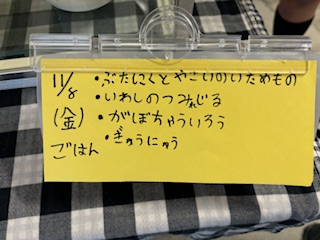 11/8
(金)
ごはん
・ぶたにくとやさいのいためもの
・いわしのつみれじる
・がぼちゃういろう
・ぎゅうにゅう